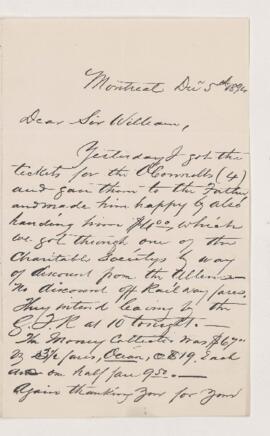 Montreal Dec 5th 1894
Dear Sir William,
Yesterday I got the
tickets for the O'Connells (4)
and gave them to the Father
and made him happy by also
handing him $4.00, which
we got through one of the
Charitable Societys by way
of discount from the
No discount off Railway fares.
They intend leaving by the
G.T.R at 10 tonight.
The Money Collected was $67
3½ fares, Ocean, @ $19. Each
one half fare 9.50.
Again thanking you for your